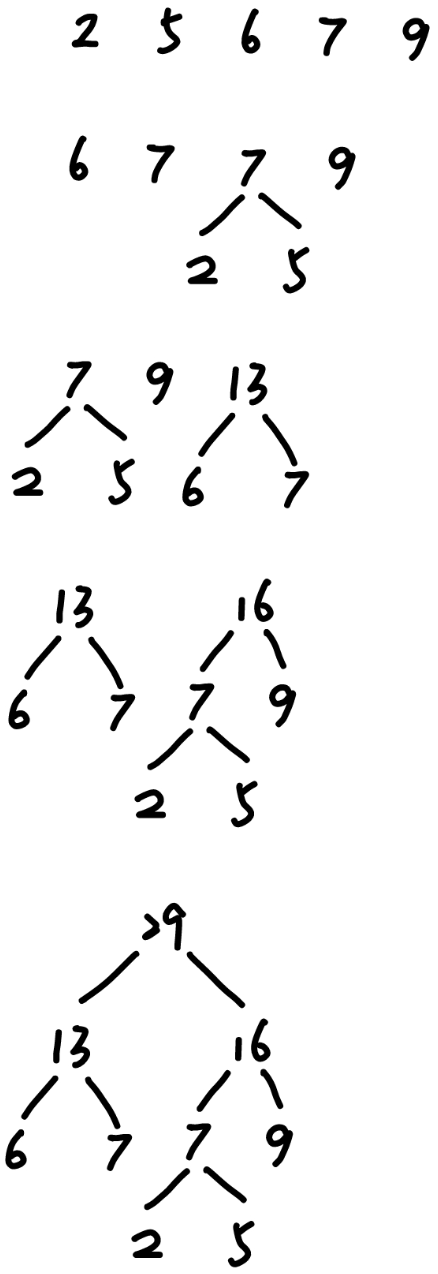 2 5 6 7 9
6 7 7 9
2 5
7 9 13
2 5 6 7
13 16
6 7 7 9
2 5
29
13 16
6 7 7 9
2 5